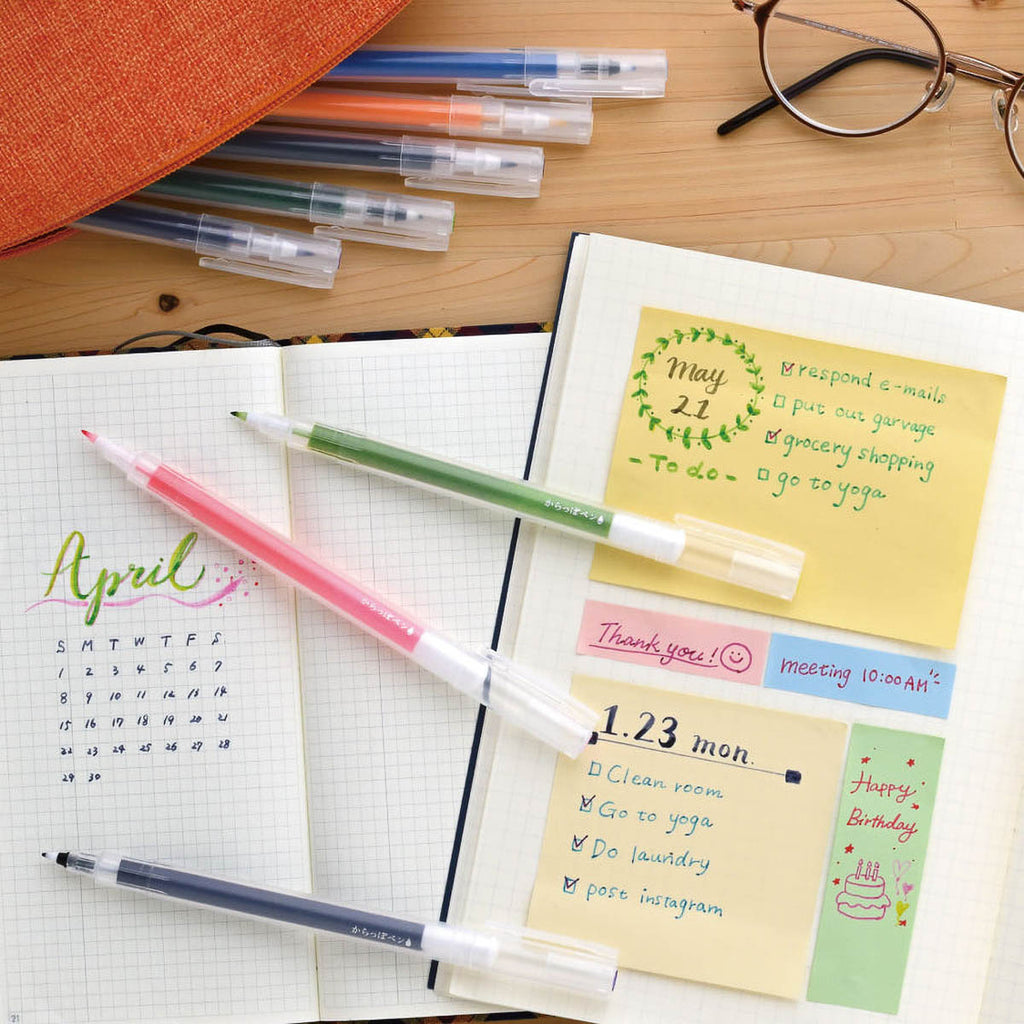 April
S M T W T F S
1 2 3 4 5 6 7
8 9 10 11 12 13 14
15 16 17 18 19 20 21
22 23 24 25 26 27 28
29 30
21
からっぽペン
からっぽペン
からっぽペン
May
21
-To do-
respond e-mails
put out garvage
grocery shopping
go to yoga
Thank you!
meeting 10:00 AM
1.23 mon.
Clean room
Go to yoga
Do laundry
post instagram
Happy
Birthday